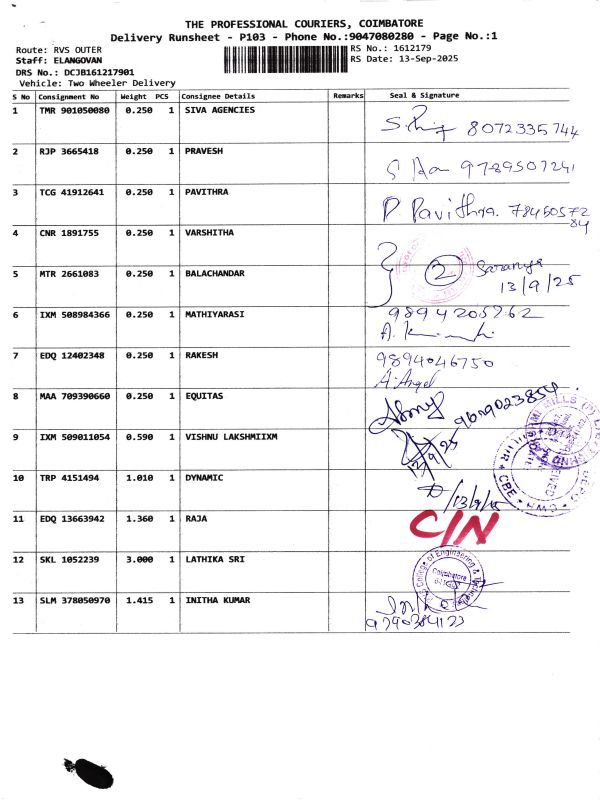 THE PROFESSIONAL COURIERS, COIMBATORE
Delivery Runsheet - P103 - Phone No.:9047080280 - Page No.:1
Route: RVS OUTER
RS No.: 1612179
Staff: ELANGOVAN
RS Date: 13-Sep-2025
DRS No.: DCJB161217901
Vehicle: Two Wheeler Delivery
S No Consignment No Weight PCS Consignee Details Remarks Seal & Signature
1 TMR 901050080 0.250 1 SIVA AGENCIES
8072335744
2 RJP 3665418 0.250 1 PRAVESH
9789507241
3 TCG 41912641 0.250 1 PAVITHRA
P Pavithra. 7845057284
4 CNR 1891755 0.250 1 VARSHITHA
2 Saranya
13/9/25
5 MTR 2661083 0.250 1 BALACHANDAR
6 IXM 508984366 0.250 1 MATHIYARASI
9894205262
7 EDQ 12402348 0.250 1 RAKESH
9894046750
A. Angel
8 MAA 709390660 0.250 1 EQUITAS
9609023854
9 IXM 509011054 0.590 1 VISHNU LAKSHMIIXM
12/9/25
10 TRP 4151494 1.010 1 DYNAMIC
13/9/25
11 EDQ 13663942 1.360 1 RAJA
C/N
12 SKL 1052239 3.000 1 LATHIKA SRI
College of Engineering &
Coimbatore
13 SLM 378050970 1.415 1 INITHA KUMAR
9790384123